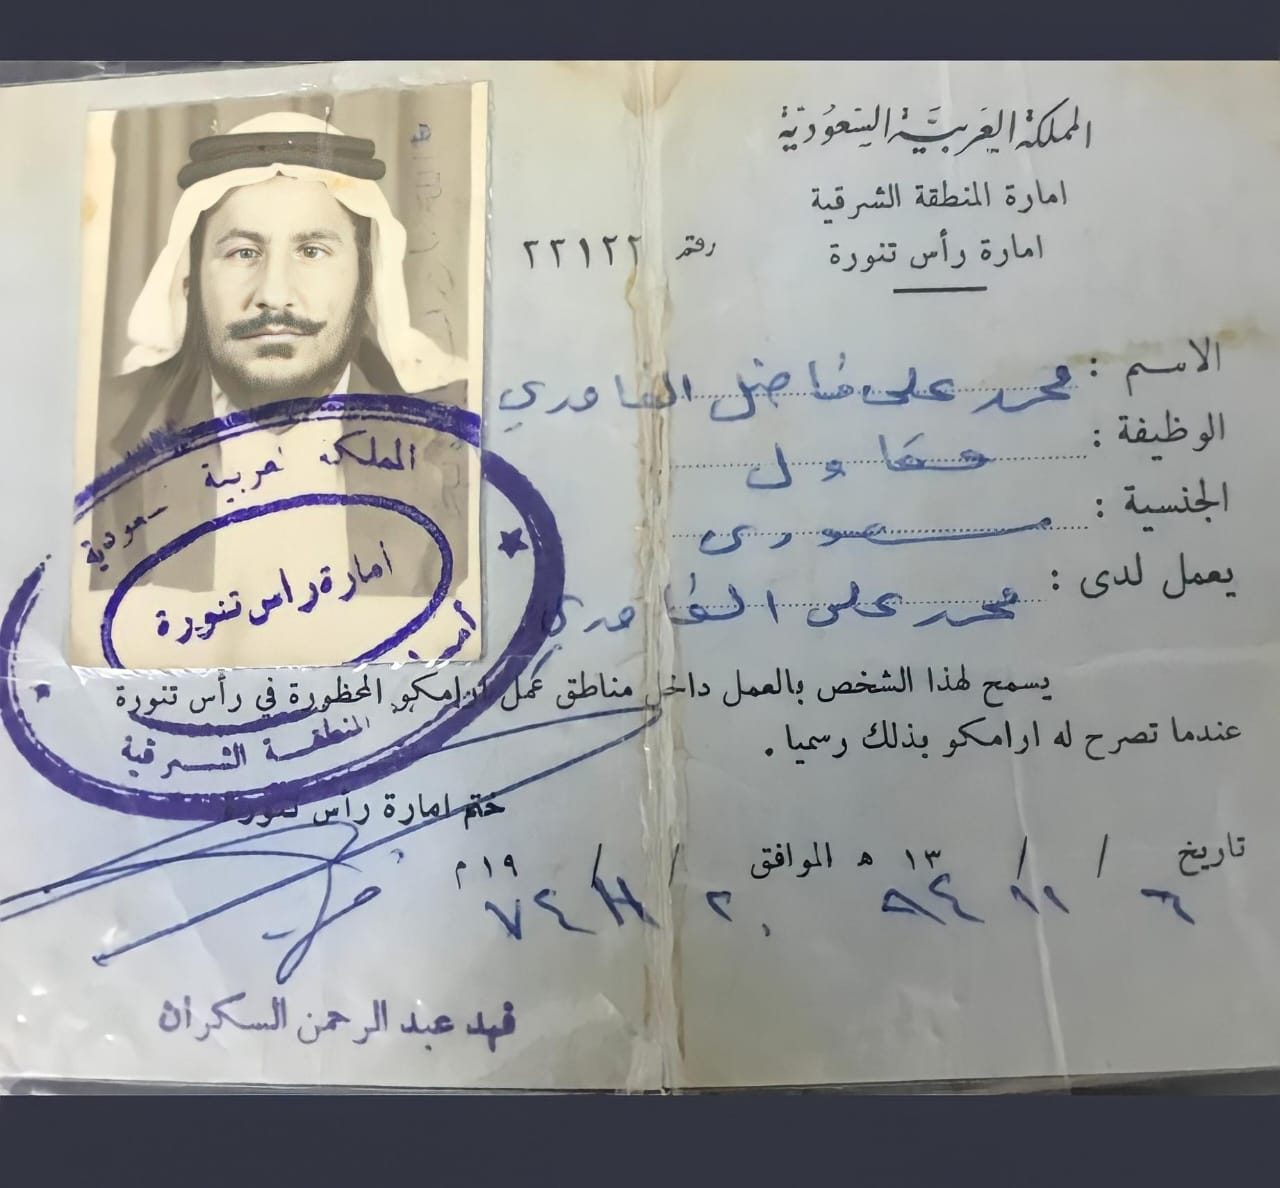 المملكة العربية السعودية
امارة المنطقة الشرقية
امارة رأس تنورة
رقم ٢٢١٢٢
الاسم : محمد علي فاضل الغاوري
الوظيفة : مقاول
الجنسية : سعودي
يعمل لدى : محمد علي الغاوري
يسمح لهذا الشخص بالعمل داخل مناطق عمل ارامكو المحظورة في رأس تنورة
عندما تصرح له ارامكو بذلك رسميا .
ختم امارة رأس تنورة
تاريخ ٦ / ١١ / ١٣٩٤ ه الموافق ٢٠ / ١١ / ١٩٧٤ م
فهد عبد الرحمن السكران
المملكة العربية السعودية
امارة راس تنورة
امارة المنطقة الشرقية